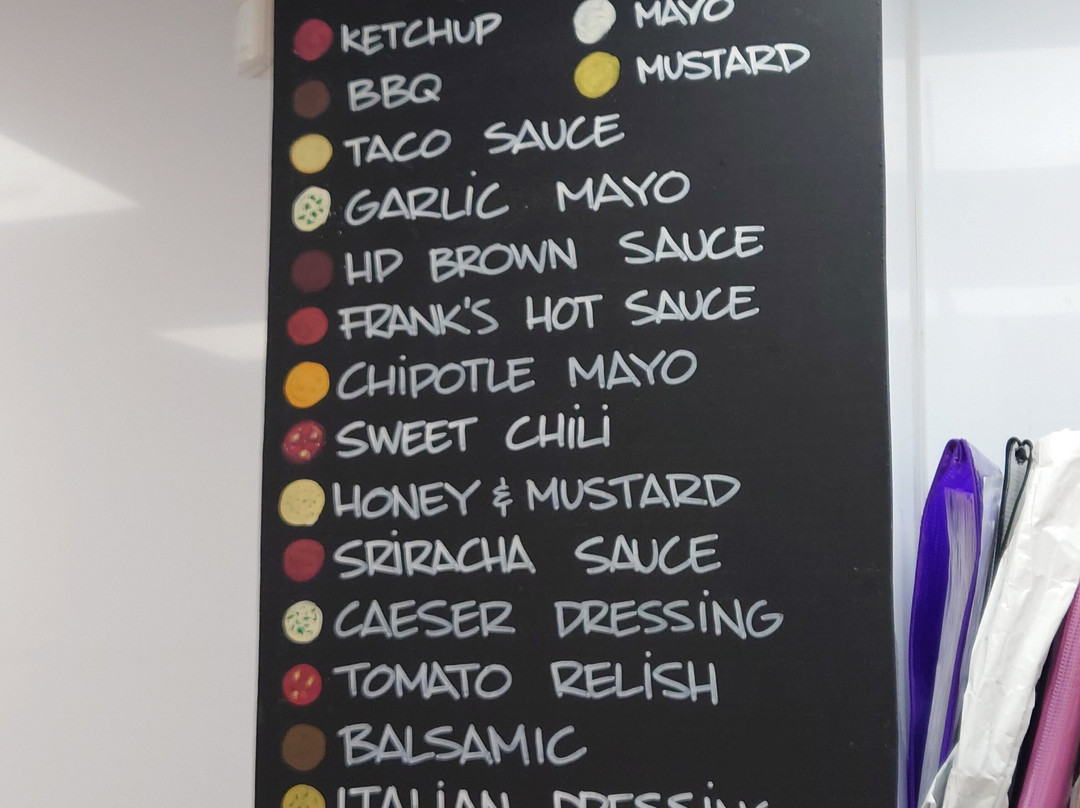 KETCHUP MAYO
BBQ MUSTARD
TACO SAUCE
GARLIC MAYO
HP BROWN SAUCE
FRANK'S HOT SAUCE
CHIPOTLE MAYO
SWEET CHILI
HONEY & MUSTARD
SRIRACHA SAUCE
CAESER DRESSING
TOMATO RELISH
BALSAMIC
ITALIAN DRESSING